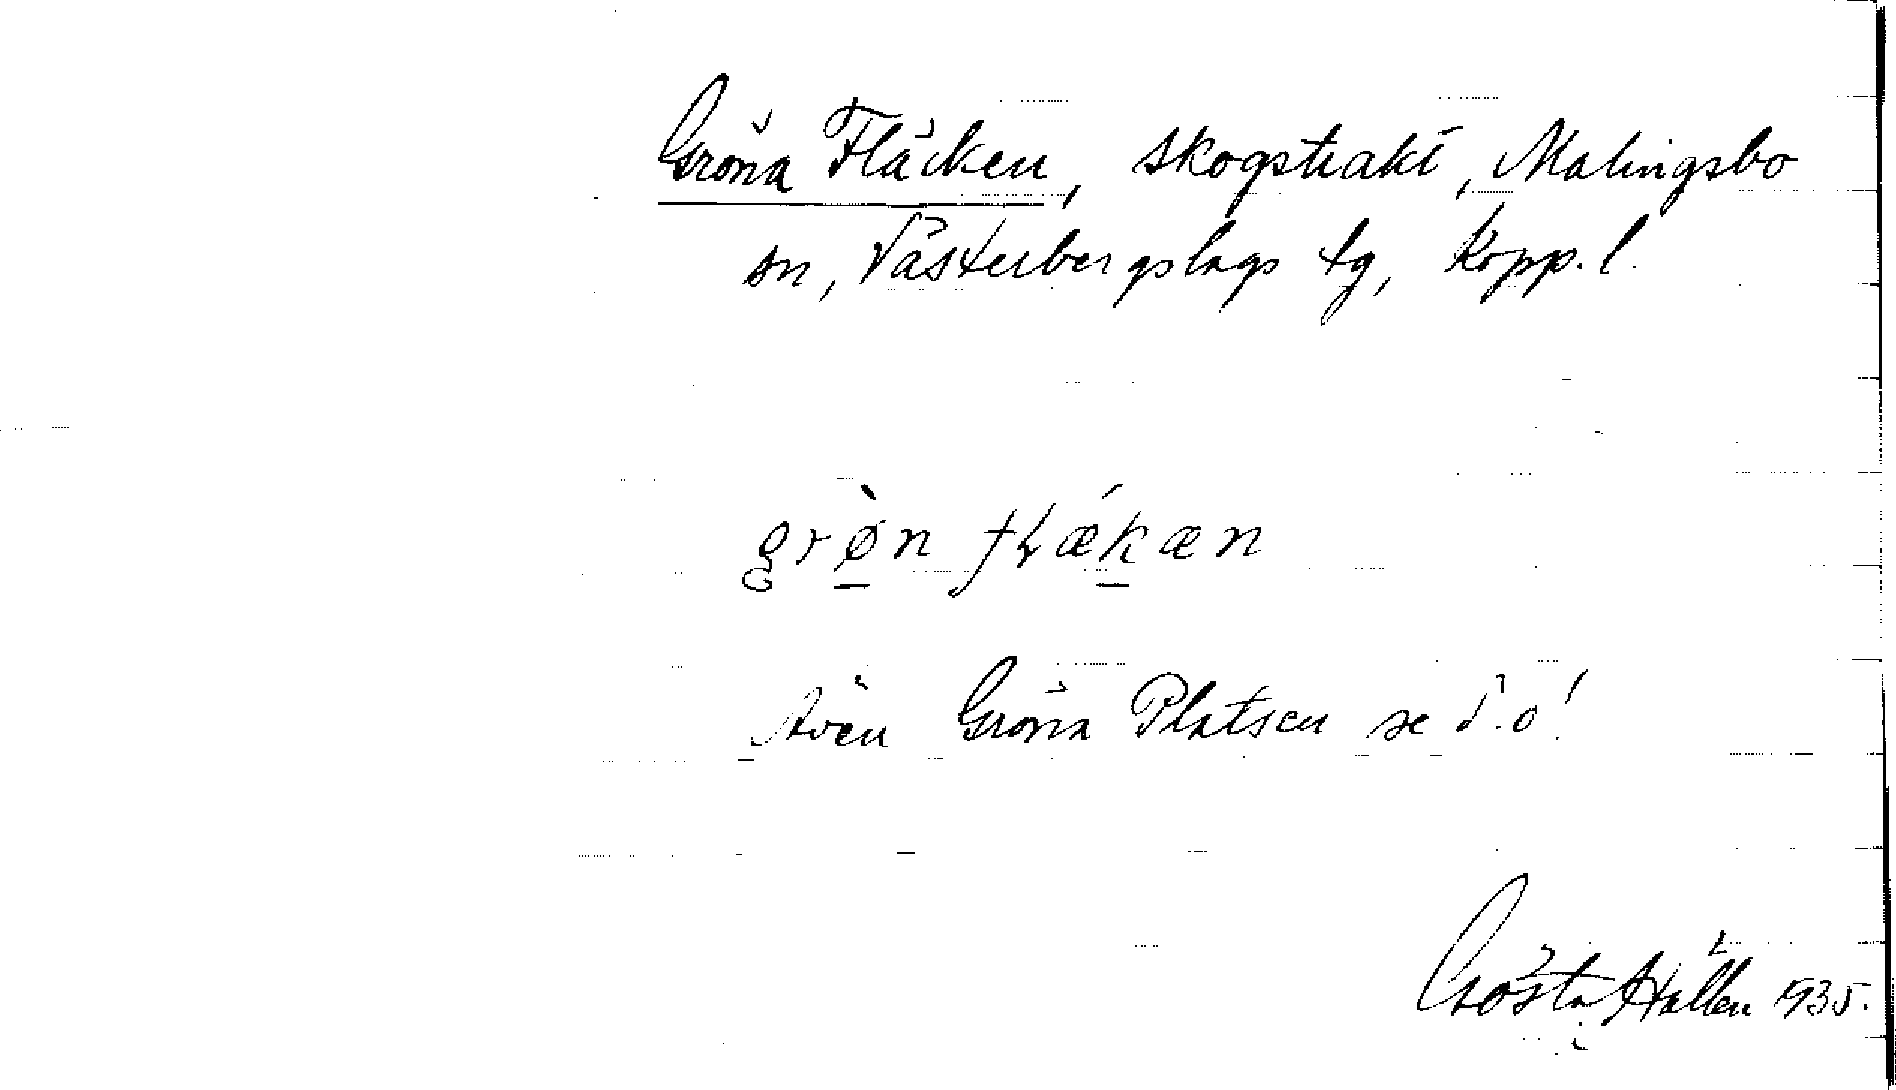 Gröna Fläcken, skogstrakt, Malingsbo
sn, Västerbergslags tg, Kopp. l.
grø̀n flǽkæn
Även Gröna Platsen se d.o!
Gösta Hallén 1935.